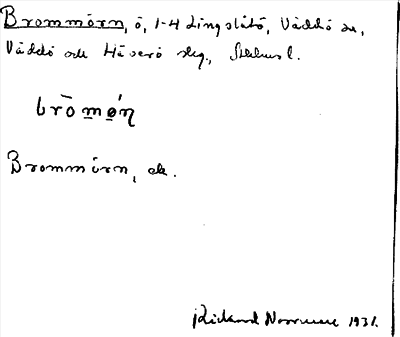 Brommörn, ö, 1-4 Lingslätö, Väddö sn,
Väddö och Häverö skg., Sthlms l.
brōmǿn
Brommörn, ek.
Rickard Norrman 1931.